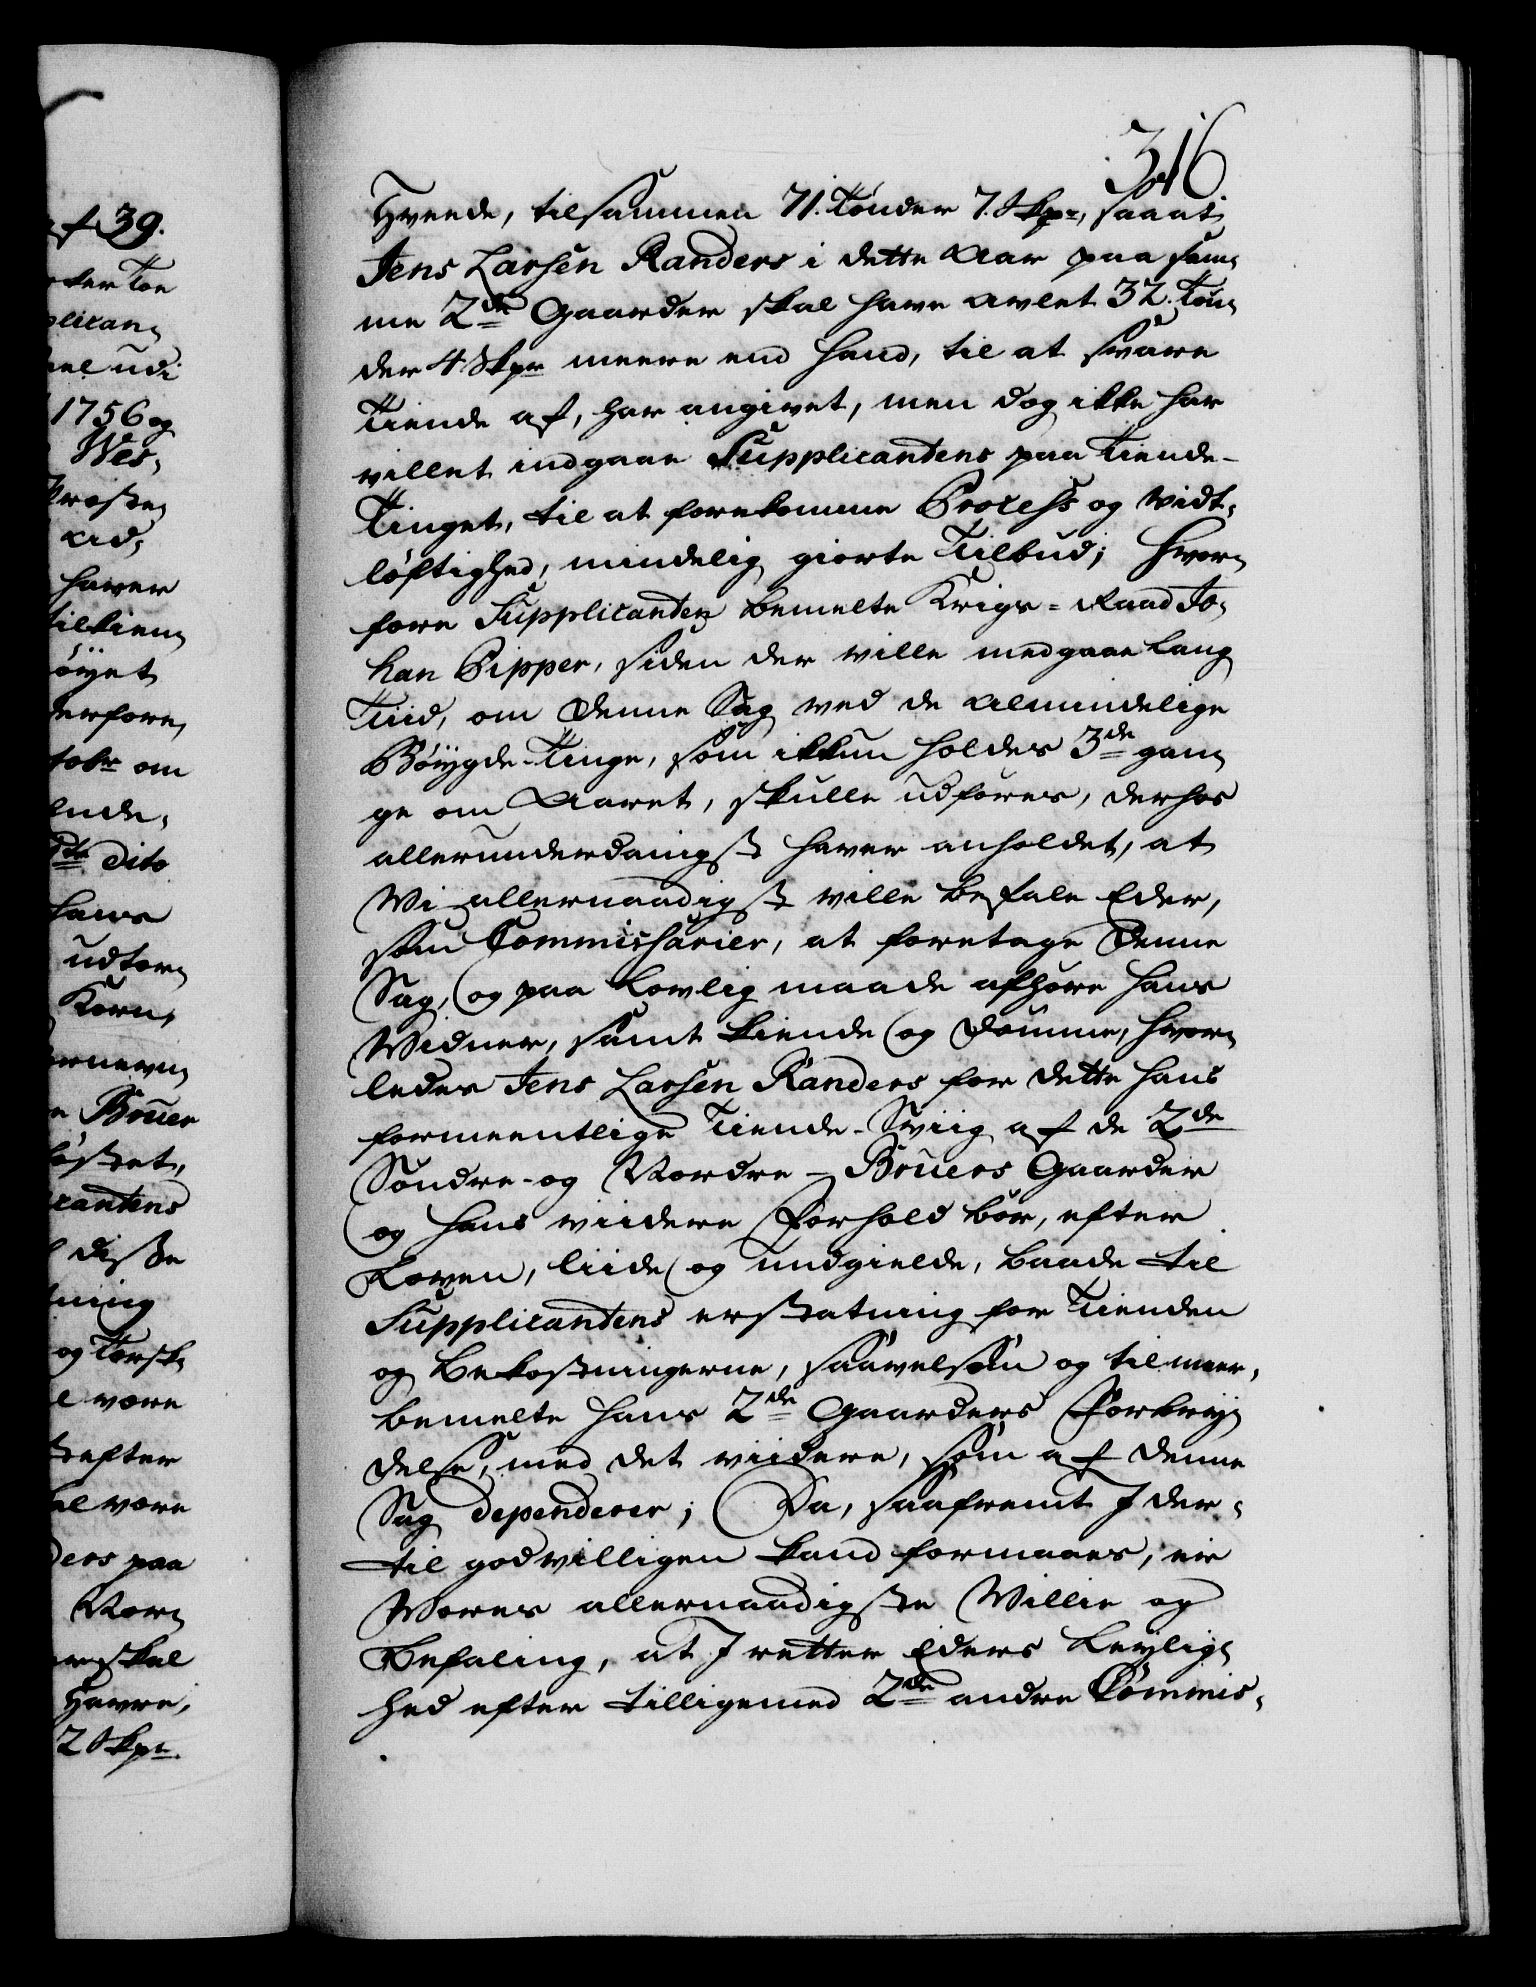 316
Hvede, tilsammen 71. Tønder 7. Skpr, saa at
Jens Larsen Randers i dette Aar paa sam¬
me 2de Gaarder skal have avlet 32. Tøn¬
der 4 Skpr meere end hand, til at svare
Tiende af, har angivet, men dog ikke har
villet indgaae Supplicantens paa Tiende-
Tinget, til at forekomme Process og Vidt¬
løftighed, mindelig giorte Tilbud; Hvor¬
fore Supplicanten bemelte Krigs-Raad Jo¬
han Pipper, siden der ville medgaae lang
Tiid, om denne Sag ved de almindelige
Bøygde-Tinge, som ikkun holdes 3de gan¬
ge om Aaret, skulle udføres, derhos
allerunderdanigst haver anholdet, at
Wi allernaadigst ville befale Eder,
som Commissarier, at foretage denne
Sag, og paa Lovlig maade afhøre hans
Widner, samt kiende og dømme, hvor¬
ledes Jens Larsen Randers for dette hans
formeentlige Tiende-Sviig af de 2de
Søndre- og Nordre-Bruers Gaarder
og hans viidere Forhold bør, efter
Loven, liide og undgielde, baade til
Supplicantens erstatning for Tienden
og Bekostningerne, saavelsom og til meer¬
bemelte hans 2de Gaarders Forbry¬
delse, med det viidere, som af denne
Sag dependerer; Da, saafremt I der¬
til godvilligen kand formaaes, er
Vores allernaadigste Willie og
Befaling, at I retter Eders Leylig¬
hed efter tilligemed 2de andre Commis¬
af 39.
udi
1756 og
Wes¬
haver
om
dito
hans
Korn,
Bruer
disse
og Torsk¬
være
efter
være
paa
Nor¬
skal
Havre,
2 Skpr.